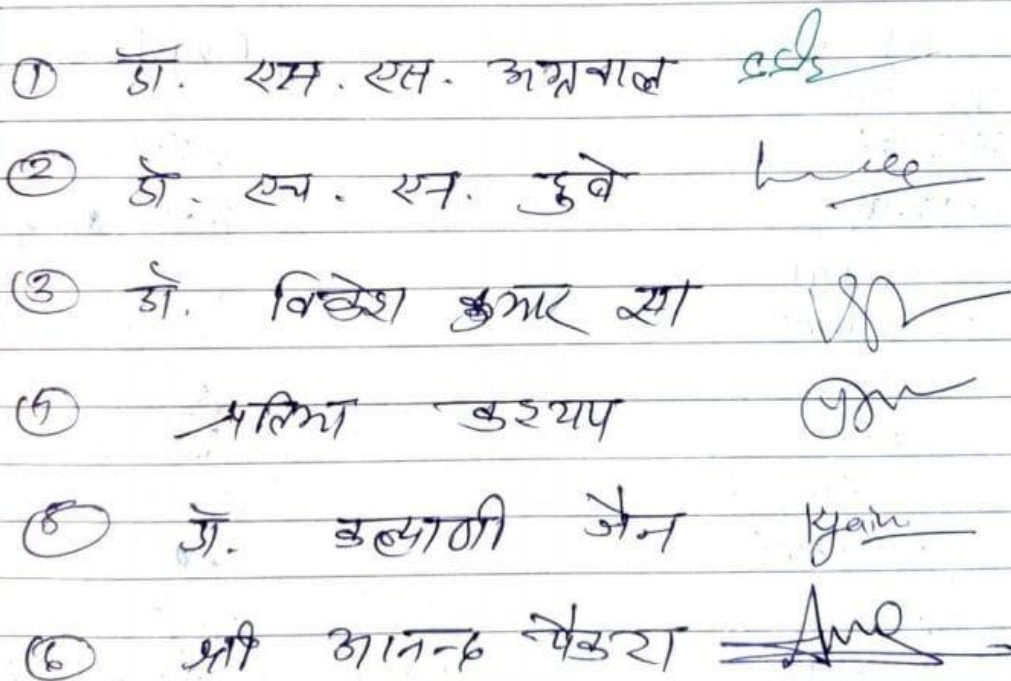 ① डॉ. एम. एस. अग्रवाल
② डॉ. एच. एन. दुबे
③ डॉ. विकेश कुमार झा
④ प्रतिमा कश्यप
⑤ डॉ. कल्याणी जैन Kjain
⑥ श्री आनन्द पैकरा